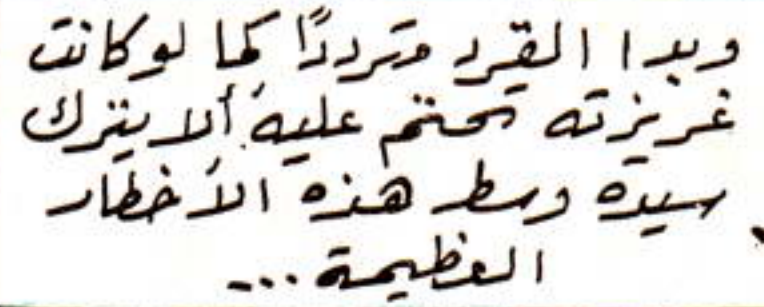 وبدا القرد مترددًا كما لو كانت
غريزته تحتم عليه ألا يترك
سيده وسط هذه الأخطار
العظيمة...